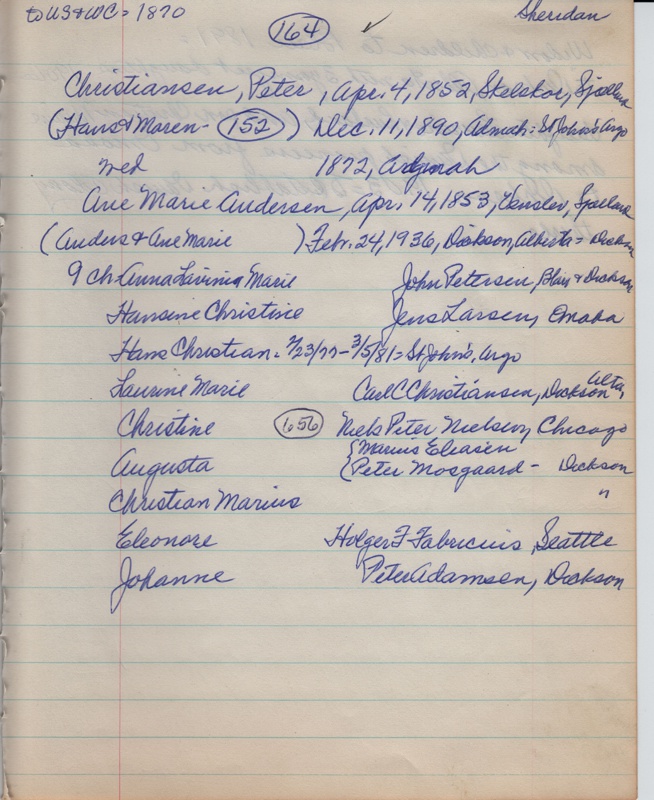 to US & WC = 1870 164 ✓ Sheridan
Christiansen, Peter, Apr. 4, 1852, Skelskor, Sjælland
(Hans & Maren - 152) Dec. 11, 1890, Admah = St John's, Argo
wed 1872, Argo
Ane Marie Andersen, Apr. 14, 1853, Venslev, Sjælland
(Anders & Ane Marie) Feb. 24, 1936, Dickson, Alberta = Dickson
9 ch. Anna Lavinia Marie John Petersen, Blair & Dickson
Hansine Christine Jens Larsen, Omaha
Hans Christian = 2/23/77 - 3/5/81 = St John's, Argo
Laurine Marie Carl C Christiansen, Dickson Alta,
Christine 656 Niels Peter Nielsen, Chicago
{ Marius Eliasen
Augusta ( Peter Mosgaard - Dickson
Christian Marius "
Eleonore Holger F Fabricius, Seattle
Johanne Peter Adamsen, Dickson